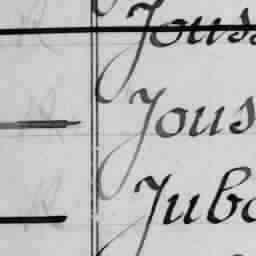 Jous
Jous
Jubo